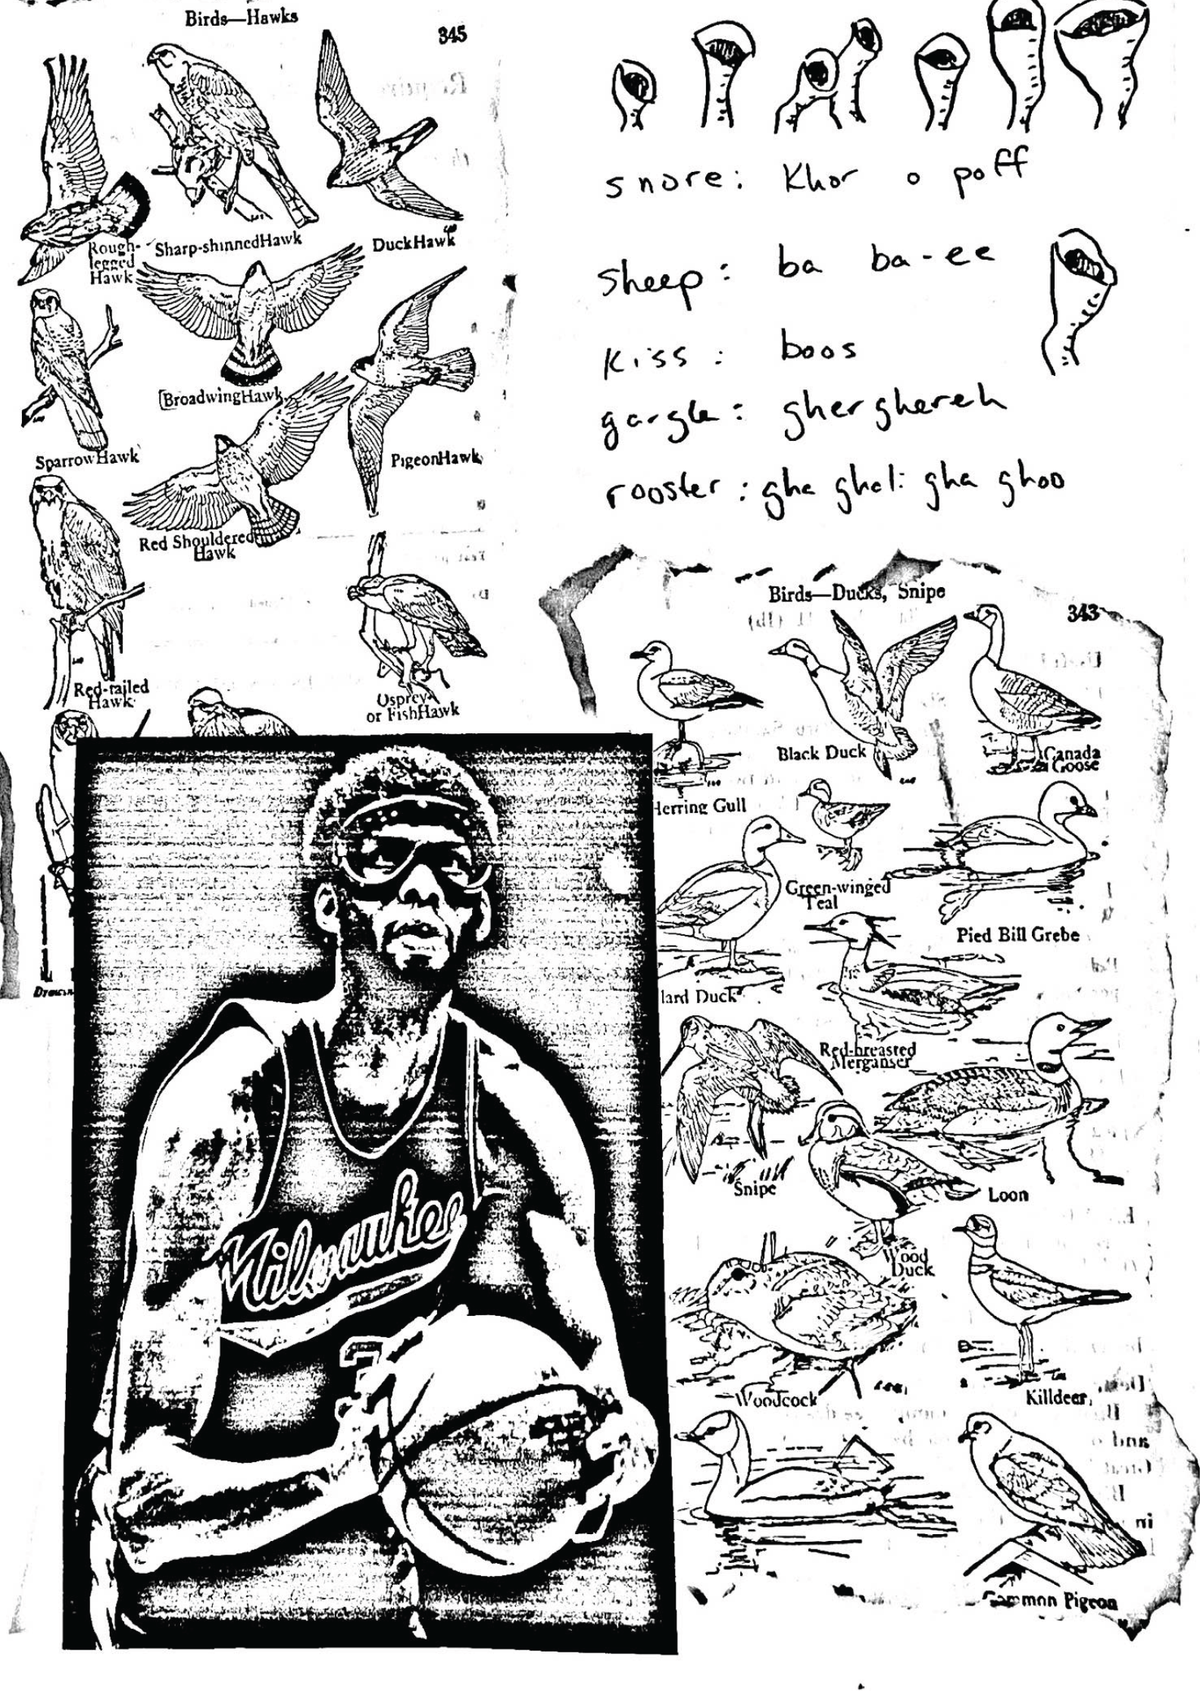 Birds—Hawks
345
Rough-
legged
Hawk
Sharp-shinned Hawk
Duck Hawk
Broadwing Hawk
Sparrow Hawk
Pigeon Hawk
Red Shouldered
Hawk
Red-tailed
Hawk
Osprey
or Fish Hawk
snore: Khor o poff
sheep: ba ba-ee
kiss: boos
gargle: gherghereh
rooster: gha ghali gha ghoo
Birds—Ducks, Snipe
343
Herring Gull
Black Duck
Canada
Goose
Green-winged
Teal
Pied Bill Grebe
lard Duck
Red-breasted
Merganser
Snipe
Loon
Wood
Duck
Woodcock
Killdeer
Common Pigeon
Milwaukee